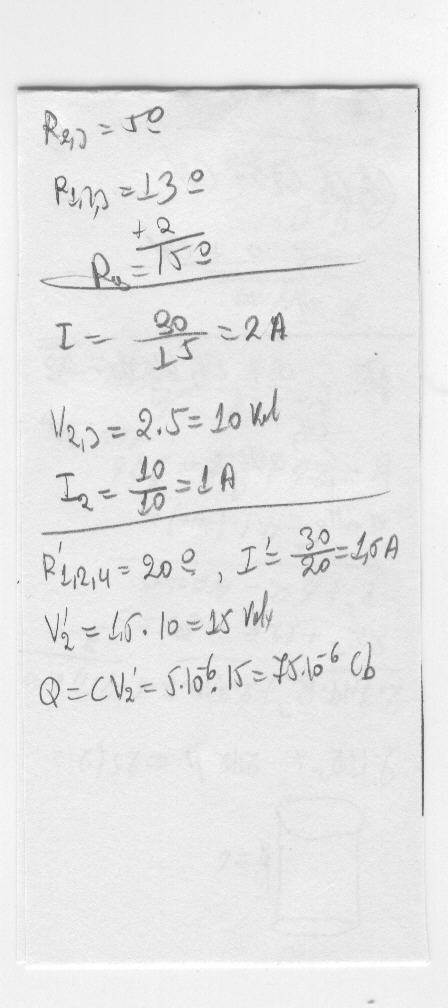 R2,3 = 5Ω
R1,2,3 = 13Ω
+ 2
= 15Ω
I = 30/15 = 2 A
V2,3 = 2.5 = 10 Volt
I2 = 10/10 = 1 A
R'1,2,4 = 20Ω, I' = 30/20 = 1,5 A
V2' = 1,5 . 10 = 15 Volt
Q = CV2' = 5.10^-6 . 15 = 75.10^-6 Cb